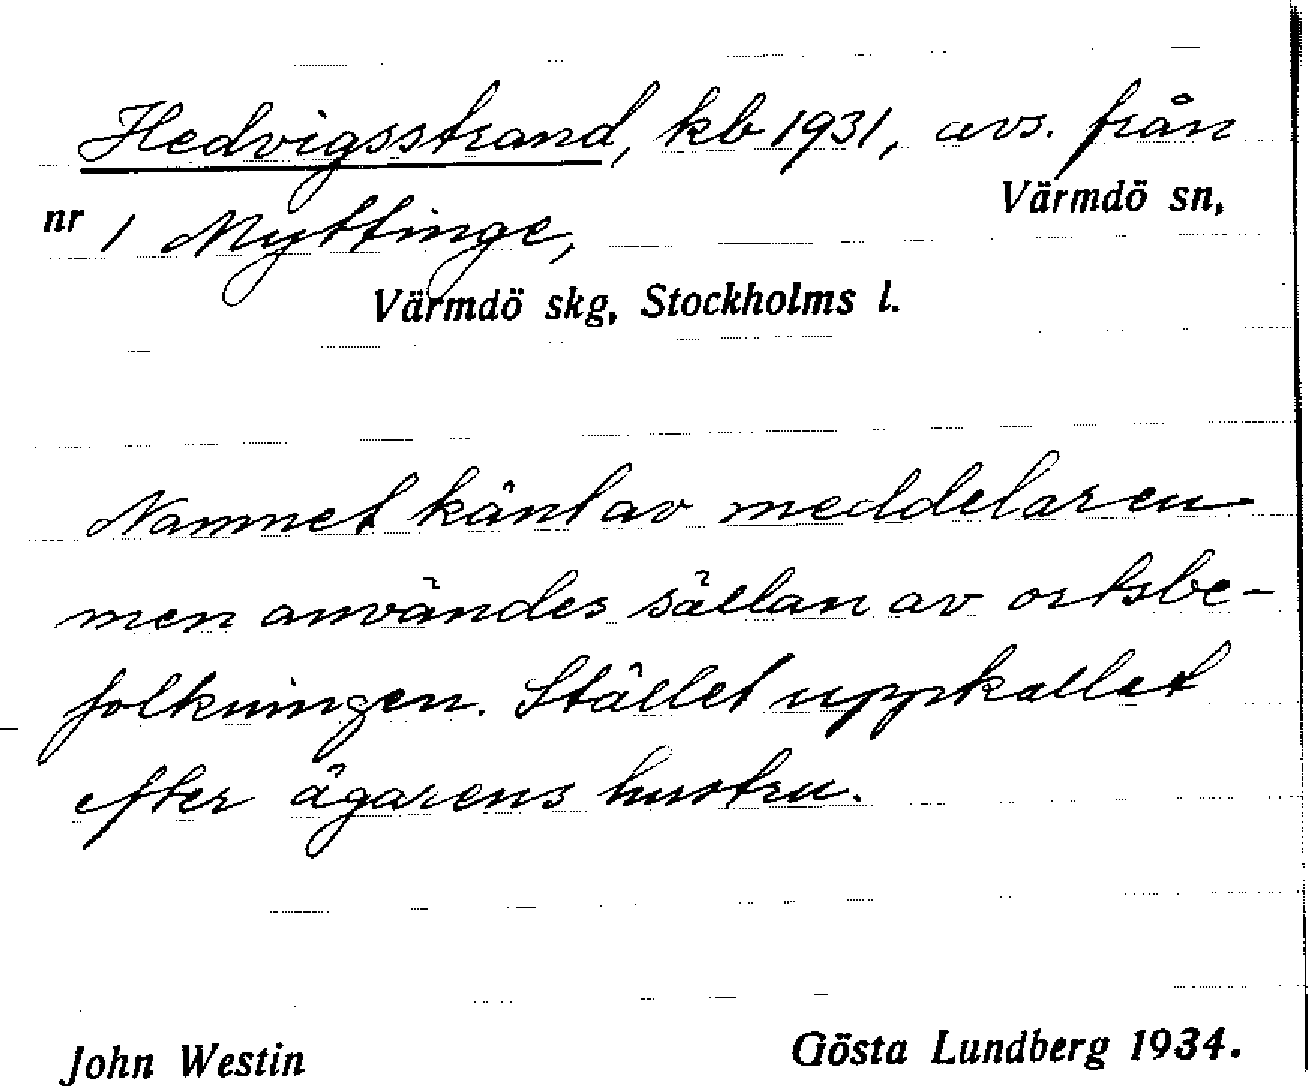 Hedvigsstrand, kb 1931, avs. från
nr 1 Myttinge, Värmdö sn,
Värmdö skg, Stockholms l.
Namnet känt av meddelaren
men användes sällan av ortsbe-
folkningen. Stället uppkallat
efter ägarens hustru.
John Westin Gösta Lundberg 1934.